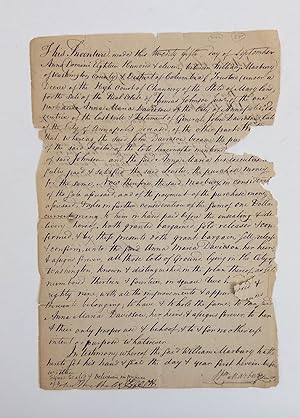 This Indenture made this twenty fifth day of September
Anno Domini Eighteen Hundred & eleven, between William Marbury
of Washington County & District of Columbia, Trustee under a
Decree of the High Court of Chancery of the State of Maryland,
for the Sale of the Real Estate of Thomas Johnson junr. of the one
part, and Anna Maria Davidson of the City of
of the last will & testament of General John Davidson late
of the City of Annapolis deceased of the other part
that Whereas the said John Davidson became the pur
of the said Trustee of the Lots hereinafter
of said Johnson, and the said Anna Maria his executrix
fully paid & satisfied the said Trustee the purchase money
for the same. Now therefore the said Marbury in consideration
of the premises, and of the payment of the purchase money
aforesaid, & also in further consideration of the sum of one Dollar
current money, to him in hand paid before the ensealing & de
livery hereof, hath granted bargained sold released & con
firmed, & by these presents doth grant bargain sell release
& confirm, unto the said Anna Maria Davidson her heirs
& assigns forever, all those Lots of Ground lying in the City
of Washington, known & distinguished in the plan thereof, as Lots
numbered thirteen & fourteen, in square two hundred &
eighty nine, with all the improvements & appurtenances
thereunto belonging, to have & to hold the same, to her said
Anna Maria Davidson, her heirs & assigns forever to her
& their only proper use & behoof, & to & for no other use
intent or purpose whatsoever.
In testimony whereof the said William Marbury hath
hereto set his hand & seal the day & year first herein before
written
Signed Sealed & Delivered in presence
of
Wm Marbury